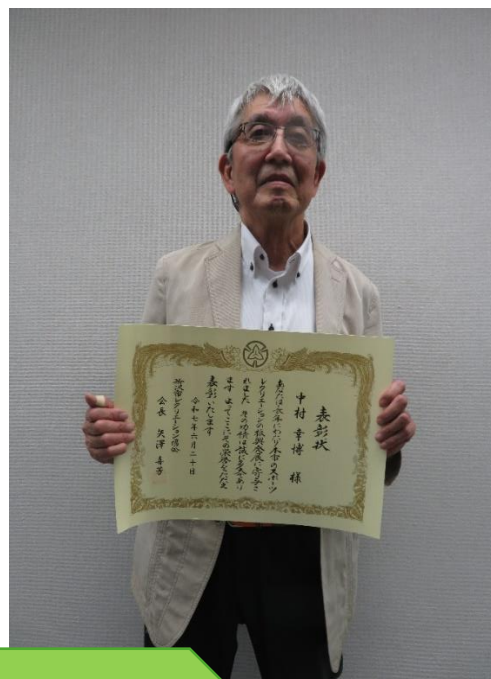 表彰状
中村 幸博 様
あなたは永年にわたり本市のスポーツ
レクリエーションの振興発展に寄与さ
れました その功績は誠に多大であり
ます よってここにその栄誉をたたえ
表彰いたします
令和七年六月二十日
レクリエーション協会
会長 矢澤